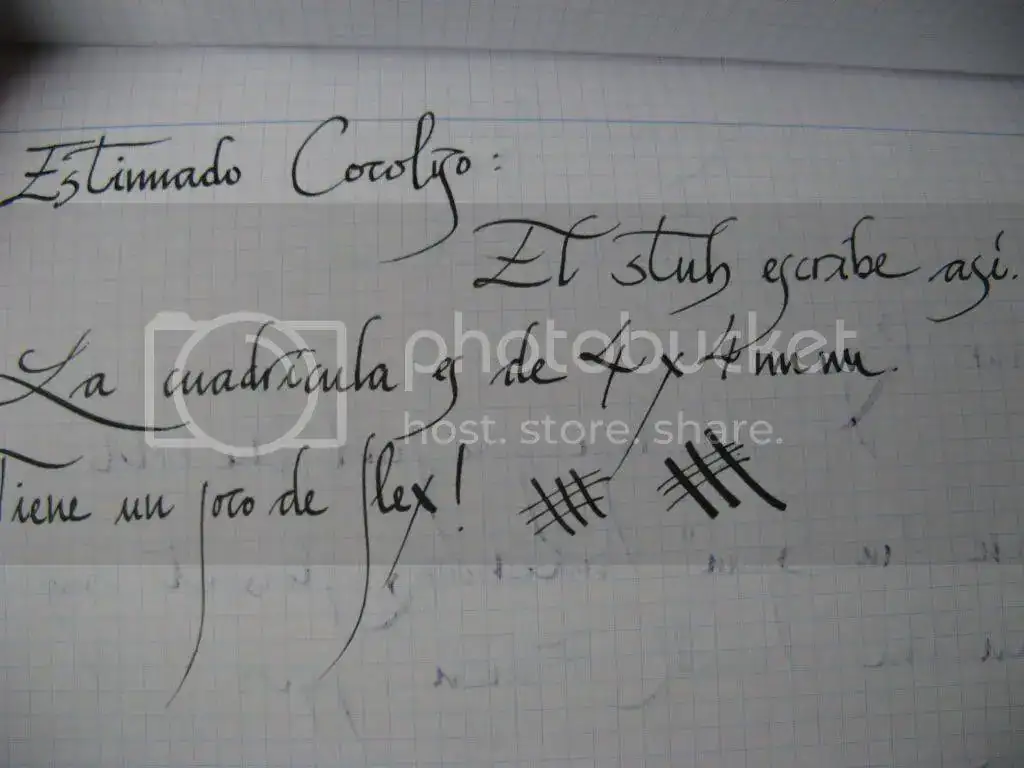 Estimado Cocolizo:
El stub escribe así.
La cuadrícula es de 4 x 4 mm.
Tiene un poco de flex!
photobucket
host. store. share.